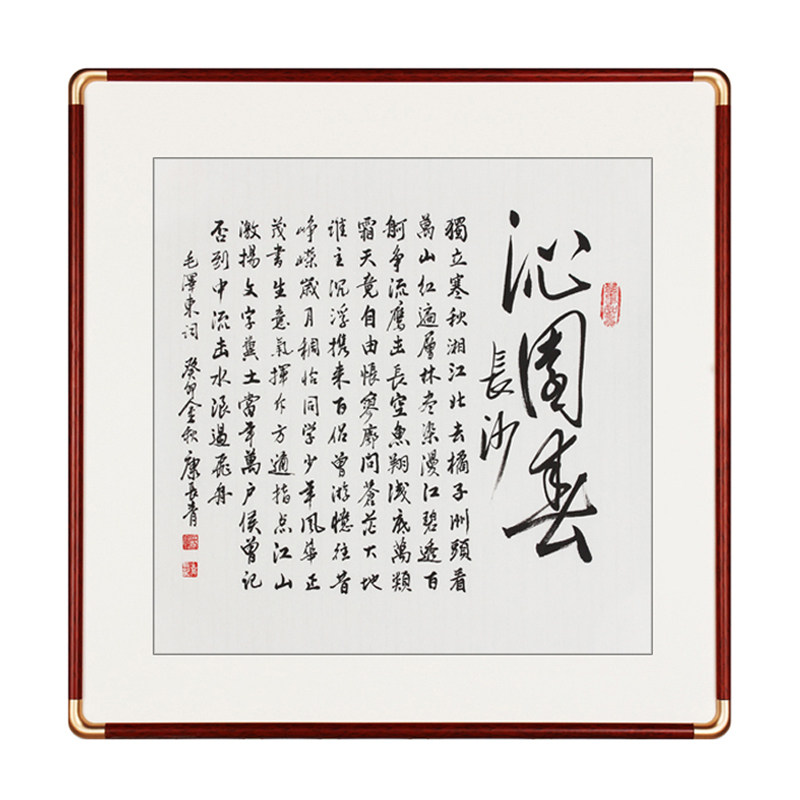 沁園春
長沙
獨立寒秋湘江北去橘子洲頭看
萬山紅遍層林盡染漫江碧透百
舸争流鷹击長空魚翔浅底萬類
霜天竟自由悵寥廓问蒼茫大地
谁主沉浮携来百侣曾游憶往昔
崢嶸歲月稠恰同学少年风華正
茂書生意氣揮斥方遒指点江山
激揚文字糞土當年萬户侯曾记
否到中流击水浪遏飛舟
毛澤東词 癸卯金秋康長青